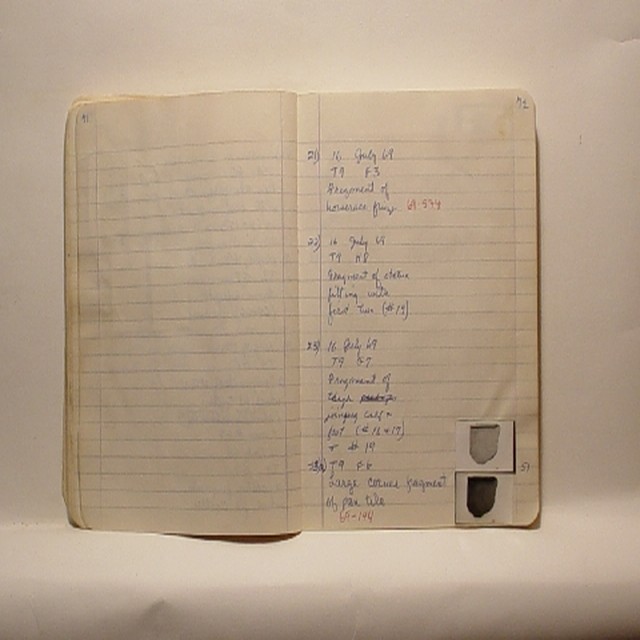 71
72
21) 16 July 69
T9 F3
Fragment of
horserace frieze 69-574
22) 16 July 69
T9 K8
Fragment of statue
fitting with
first two (#19)
23) 16 July 69
T9 F7
Fragment of
thigh
joining calf +
foot (#16+17)
+ #19
T9 F6
Large corner fragment
of pan tile
69-144